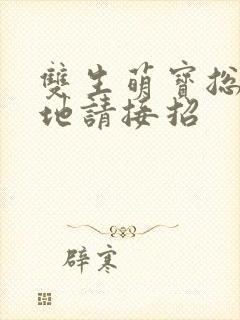 雙生萌寶総
地請接招
辟寒